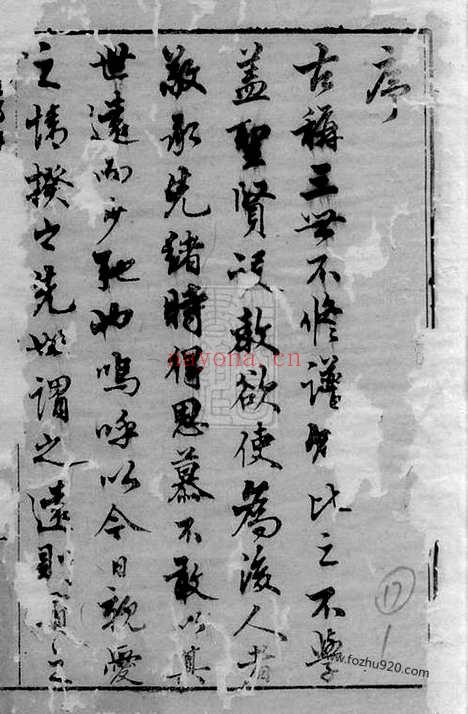 序
古稱三世不修譜者比之不學
盖聖賢設教欲使為後人者
敬承先緒時得思慕不敢以其
世遠而少弛也嗚呼以今日親愛
之情揆之先世謂之遠則
nayona.cn
17
www.fozhu920.com